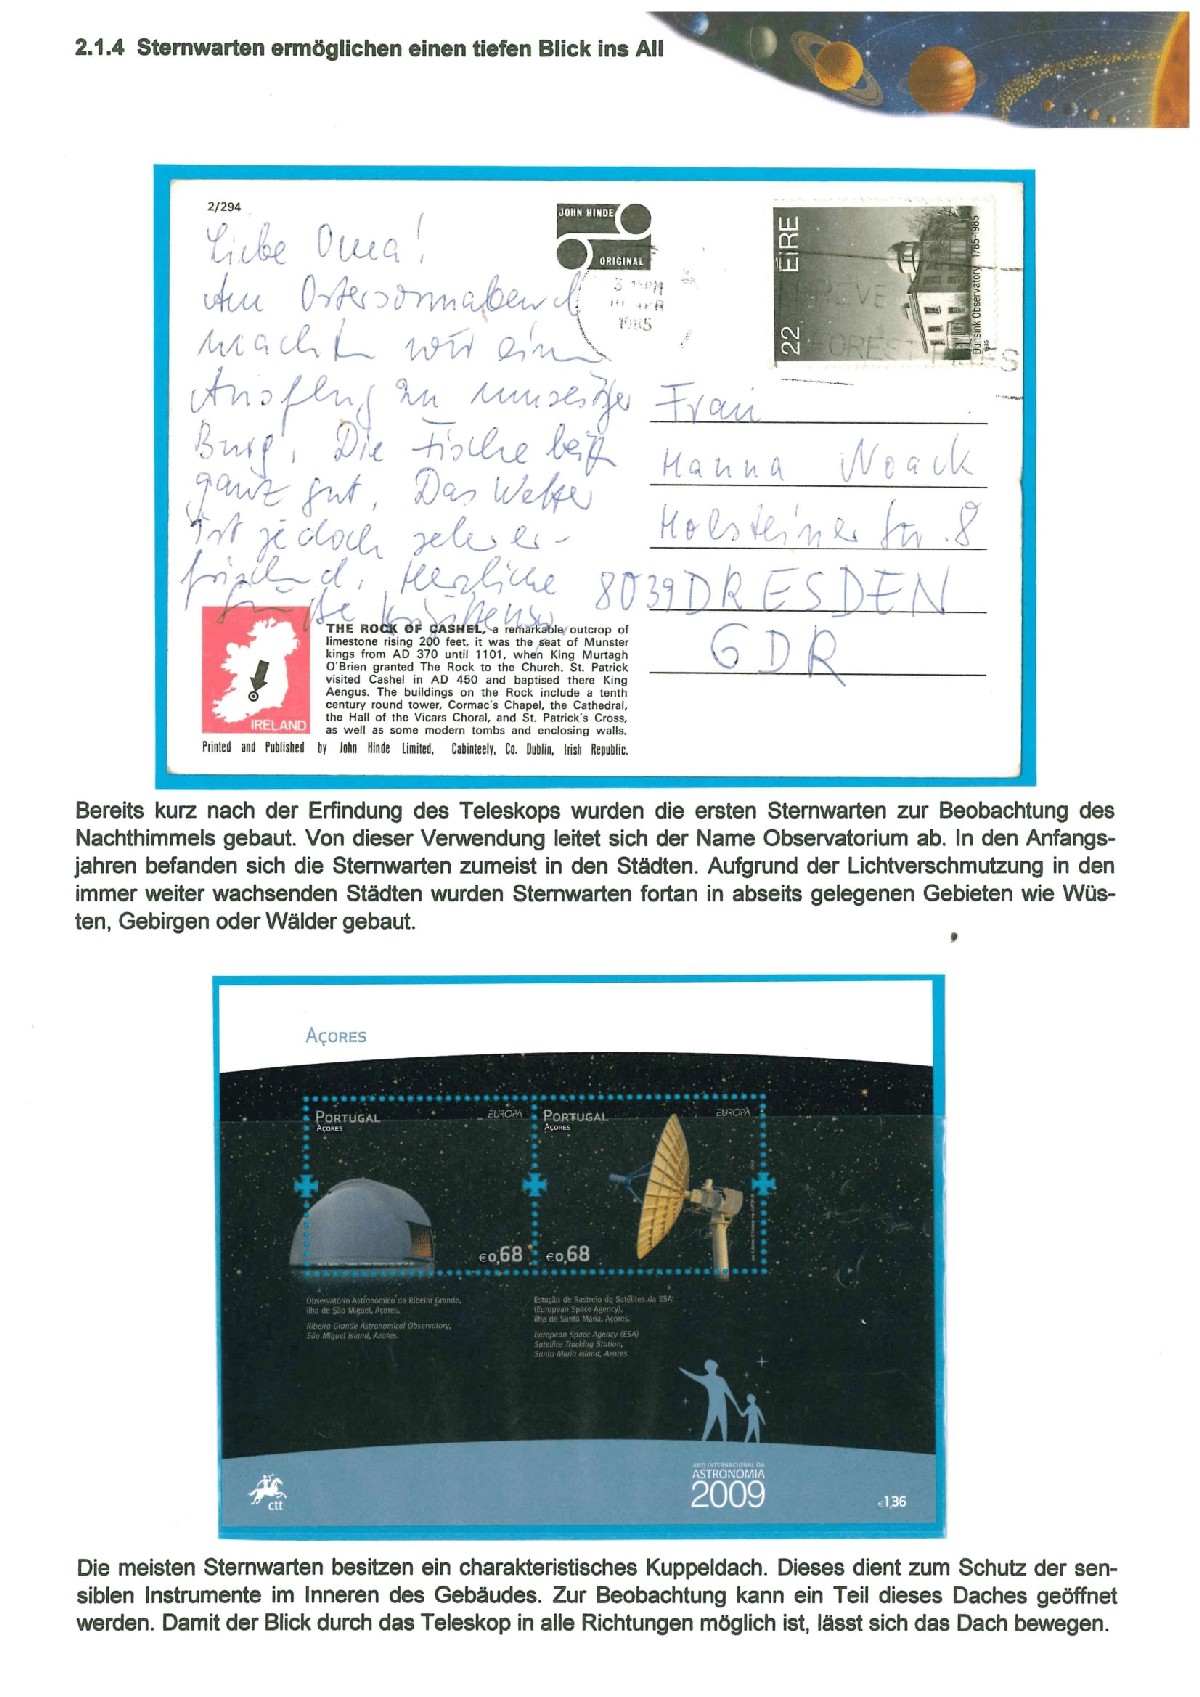 2.1.4 Sternwarten ermöglichen einen tiefen Blick ins All
2/294
JOHN HINDE
ORIGINAL
1985
ÉIRE
22
Dunsink Observatory 1785-1985
FOREST FIRES
Liebe Oma!
Am Ostersonnabend
machten wir einen
Ausflug zu unserer
Burg. Die Fische beißen
ganz gut. Das Wetter
ist jedoch sehr er-
frischend. Herzliche
Grüße
Frau
Hanna Noack
Holsteiner Str. 8
8039 DRESDEN
GDR
IRELAND
THE ROCK OF CASHEL, a remarkable outcrop of
limestone rising 200 feet, it was the seat of Munster
kings from AD 370 until 1101, when King Murtagh
O'Brien granted The Rock to the Church. St. Patrick
visited Cashel in AD 450 and baptised there King
Aengus. The buildings on the Rock include a tenth
century round tower, Cormac's Chapel, the Cathedral,
the Hall of the Vicars Choral, and St. Patrick's Cross,
as well as some modern tombs and enclosing walls.
Printed and Published by John Hinde Limited, Cabinteely, Co. Dublin, Irish Republic.
Bereits kurz nach der Erfindung des Teleskops wurden die ersten Sternwarten zur Beobachtung des
Nachthimmels gebaut. Von dieser Verwendung leitet sich der Name Observatorium ab. In den Anfangs-
jahren befanden sich die Sternwarten zumeist in den Städten. Aufgrund der Lichtverschmutzung in den
immer weiter wachsenden Städten wurden Sternwarten fortan in abseits gelegenen Gebieten wie Wüs-
ten, Gebirgen oder Wälder gebaut.
AÇORES
PORTUGAL
AÇORES
EUROPA
€0,68
PORTUGAL
AÇORES
EUROPA
€0,68
Observatório Astronómico da Ribeira Grande,
Ilha de São Miguel, Açores.
Ribeira Grande Astronomical Observatory,
São Miguel Island, Azores.
Estação de Rastreio de Satélites da ESA
(European Space Agency),
Ilha de Santa Maria, Açores.
European Space Agency (ESA)
Satellite Tracking Station,
Santa Maria Island, Azores.
ctt
ANO INTERNACIONAL DA
ASTRONOMIA
2009
€1,36
Die meisten Sternwarten besitzen ein charakteristisches Kuppeldach. Dieses dient zum Schutz der sen-
siblen Instrumente im Inneren des Gebäudes. Zur Beobachtung kann ein Teil dieses Daches geöffnet
werden. Damit der Blick durch das Teleskop in alle Richtungen möglich ist, lässt sich das Dach bewegen.